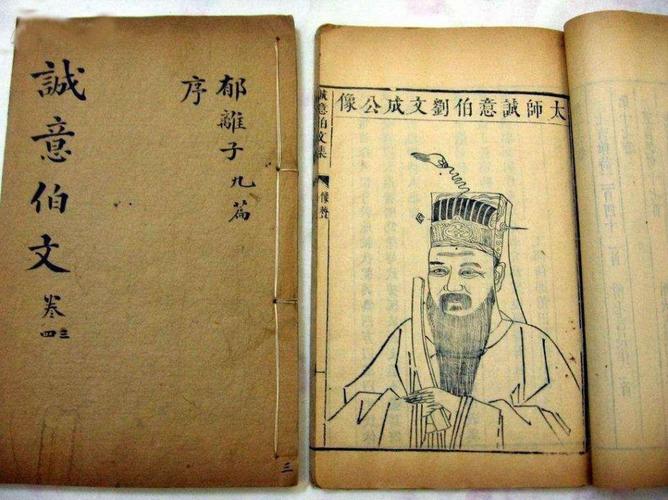 誠意伯文 卷三四
郁離子九篇
序
三
太師誠意伯劉文成公像
誠意伯文集
像贊